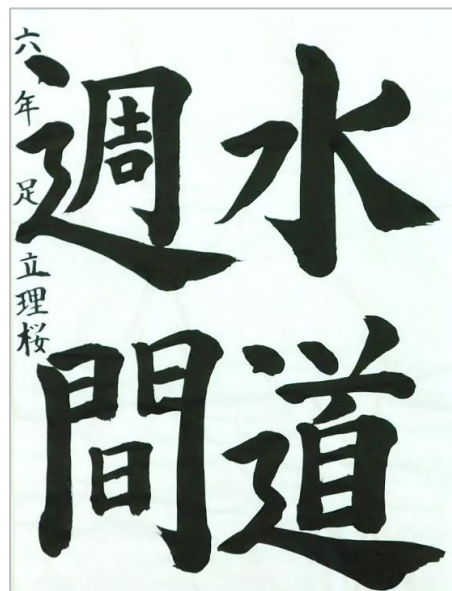 水道
週間
六年 足立理桜